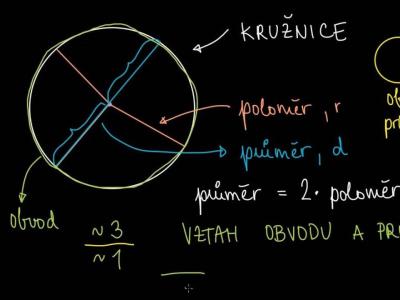 KRUŽNICE
poloměr, r
průměr, d
průměr = 2 · poloměr
obvod
~ 3
~ 1
VZTAH OBVODU A